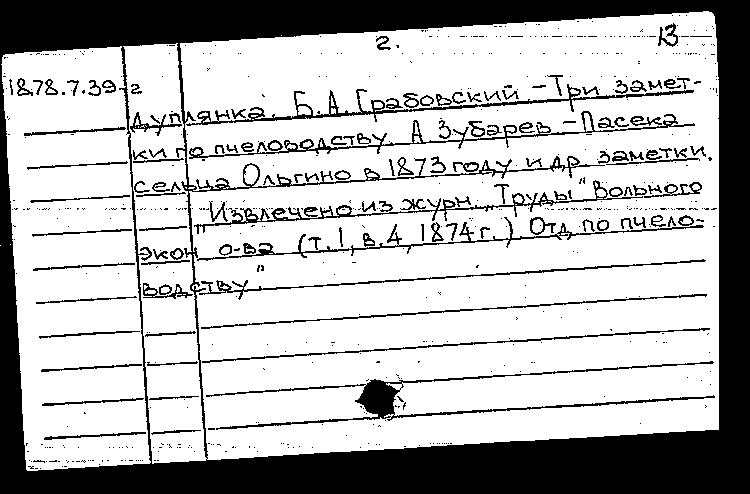 2. 13
18.78.7.39-г
дуплянка. Б.А. Грабовский – Три замет-
ки по пчеловодству. А Зубарев – Пасека
сельца Ольгино в 1873 году и др. заметки.
"Извлечено из журн. „Труды" Вольного
экон. о-ва (т. 1, в. 4, 1874 г.) Отд. по пчело-
водству".